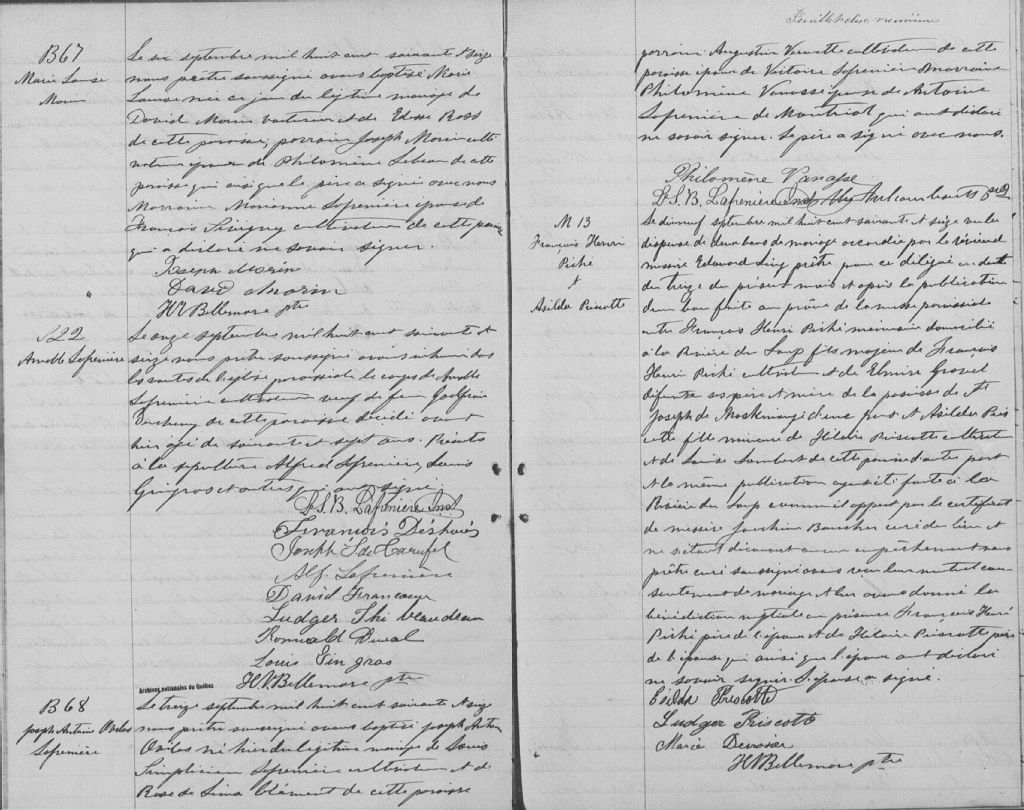 B67
Marie Louise
Morin
Le six septembre mil huit cent soixante et seize
nous prêtre soussigné avons baptisé Marie
Louise née ce jour du légitime mariage de
David Morin voiturier et de Edesse Ross
de cette paroisse, parrain Joseph Morin
époux de Philomine Lebeau de cette
paroisse qui ainsi que le père a signé avec nous
Marraine Marianne Lafrenière épouse de
François Sévigny cultivateur de cette paroisse
qui a déclaré ne savoir signer.
Joseph Morin
David Morin
H V Bellemare ptre
S22
Lafrenière
Le onze septembre mil huit cent soixante et
seize nous prêtre soussigné avons inhumé dans
les voutes de l'église paroissiale le corps de
Lafrenière cultivateur veuf de feue
de cette paroisse décédé avant
hier agé de soixante et sept ans. Présents
à la sépulture Alfred Lafrenière, Louis
Gingras et autres qui ont signé.
L. S. B. Lafrenière Inst
François Déshaies
Joseph S de Carufel
Alf. Lafrenière
David Francoeur
Ludger Thibeaudeau
Romuald Duval
Louis Gingras
H V Bellemare ptre
Archives nationales du Québec
B68
Joseph Antoine
Lafrenière
Le treize septembre mil huit cent soixante et seize
nous prêtre soussigné avons baptisé Joseph Antoine
né hier du légitime mariage de Louis
Simplicien Lafrenière cultivateur et de
Rose de Lima Clément de cette paroisse
Feuillet dix neuvième
parrain Augustin cultivateur de cette
paroisse époux de Victoire Lafrenière marraine
Philomine Vanasse épouse de Antoine
Lafrenière de Montréal qui ont déclaré
ne savoir signer. Le père a signé avec nous.
Philomène Vanasse
L. S. B. Lafrenière Inst
M 13
François Henri
Piché
et
Asilda Priscotte
Le dixneuf septembre mil huit cent soixante et seize vu la
dispense de deux bans de mariage accordée par le révérend
messire Edouard Ling prêtre pour ce délégué en date
du treize du présent mois et après la publication
d'un ban faite au prône de la messe paroissiale
entre François Henri Piché menuisier domicilié
à la Rivière du Loup fils majeur de François
Henri Piché cultivateur et de Elmire Gravel
défunte ses père et mère de la paroisse de St
Joseph de Maskinongé d'une part et Asilda Pris
cotte fille mineure de Hilaire Priscotte cultivateur
et de Louise Lambert de cette paroisse d'autre part
et la même publication ayant été faite à la
Rivière du Loup comme il appert par le certificat
de messire Joachim Boucher curé du lieu et
ne s'étant découvert aucun empêchement nous
prêtre curé soussigné avons reçu leur mutuel con
sentement de mariage et leur avons donné la
bénédiction nuptiale en présence François Henri
Piché père de l'époux et de Hilaire Priscotte père
de l'épouse qui ainsi que l'époux ont déclaré
ne savoir signer. L'épouse a signé.
Exilda Priscotte
Ludger Priscott
Marie
H V Bellemare ptre